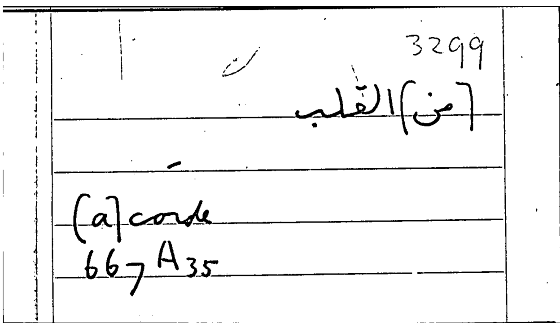 3299
[من] القلب
[a] corde
667 A 35